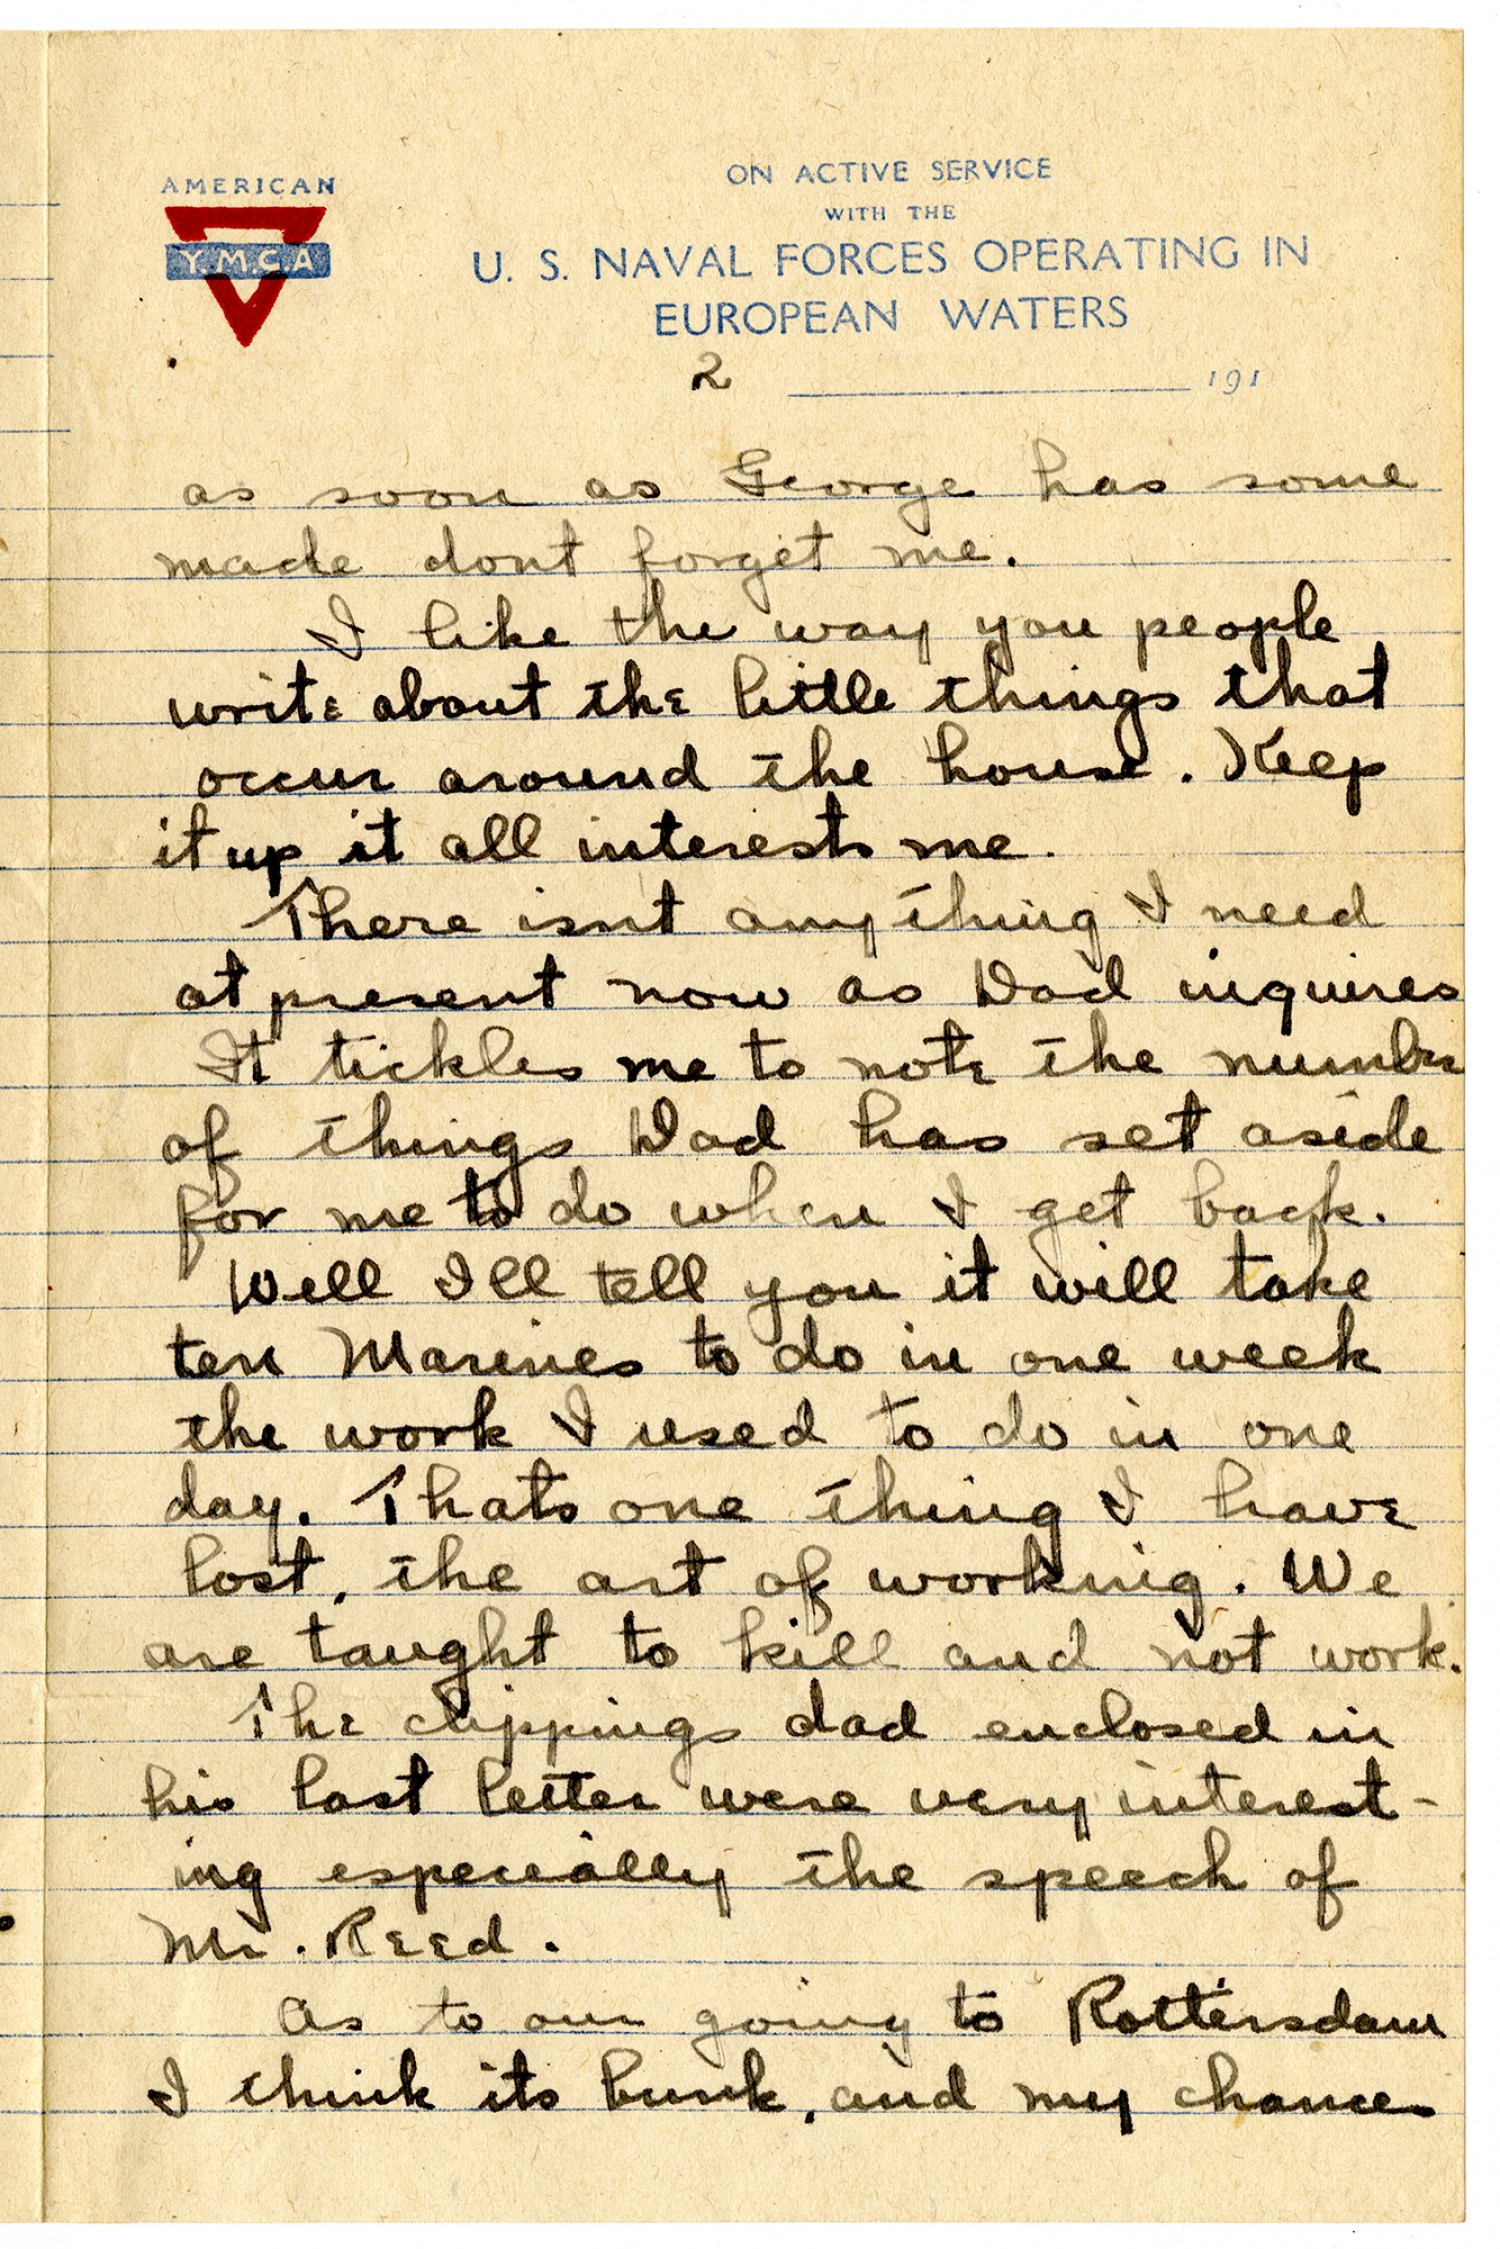 AMERICAN
Y.M.C.A
ON ACTIVE SERVICE
WITH THE
U. S. NAVAL FORCES OPERATING IN
EUROPEAN WATERS
2 191
as soon as George has some
made dont forget me.
I like the way you people
write about the little things that
occur around the house. Keep
it up it all interests me.
There isnt anything I need
at present now as Dad inquires
It tickles me to note the number
of things Dad has set aside
for me to do when I get back.
Well I'll tell you it will take
ten Marines to do in one week
the work I used to do in one
day. Thats one thing I have
lost, the art of working. We
are taught to kill and not work.
The clippings dad enclosed in
his last letter were very interest-
ing especially the speech of
Mr. Reed.
As to our going to Rottersdam
I think its bunk, and my chances